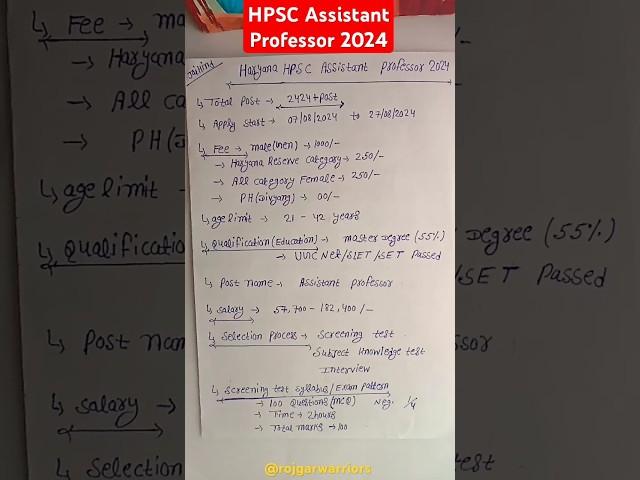 HPSC Assistant
Professor 2024
Joining
Haryana HPSC Assistant Professor 2024
↳ Total Post → 2424+Post
↳ Apply Start → 07/08/2024 to 27/08/2024
↳ Fee → male(Men) → 1000/-
→ Haryana Reserve Category → 250/-
→ All Category Female → 250/-
→ PH(Divyang) → 00/-
↳ age limit → 21 - 42 years
↳ Qualification(Education) → master Degree (55%)
→ UGC Net/SLET/SET Passed
↳ Post name → Assistant professor
↳ salary → 57,700 - 182,400/-
↳ Selection Process → Screening test
Subject Knowledge test
Interview
↳ Screening test Syllabus/Exam pattern
→ 100 Questions (MCQ) Neg. 1/4
→ Time → 2 hours
→ Total marks → 100
@rojgarwarriors
↳ Fee → m
→ Haryana
→ All ca
→ PH(D
↳ age limit →
↳ Qualification
↳ Post nam
↳ Salary →
↳ Selection
Degree (55%)
/SET Passed
ssor
test